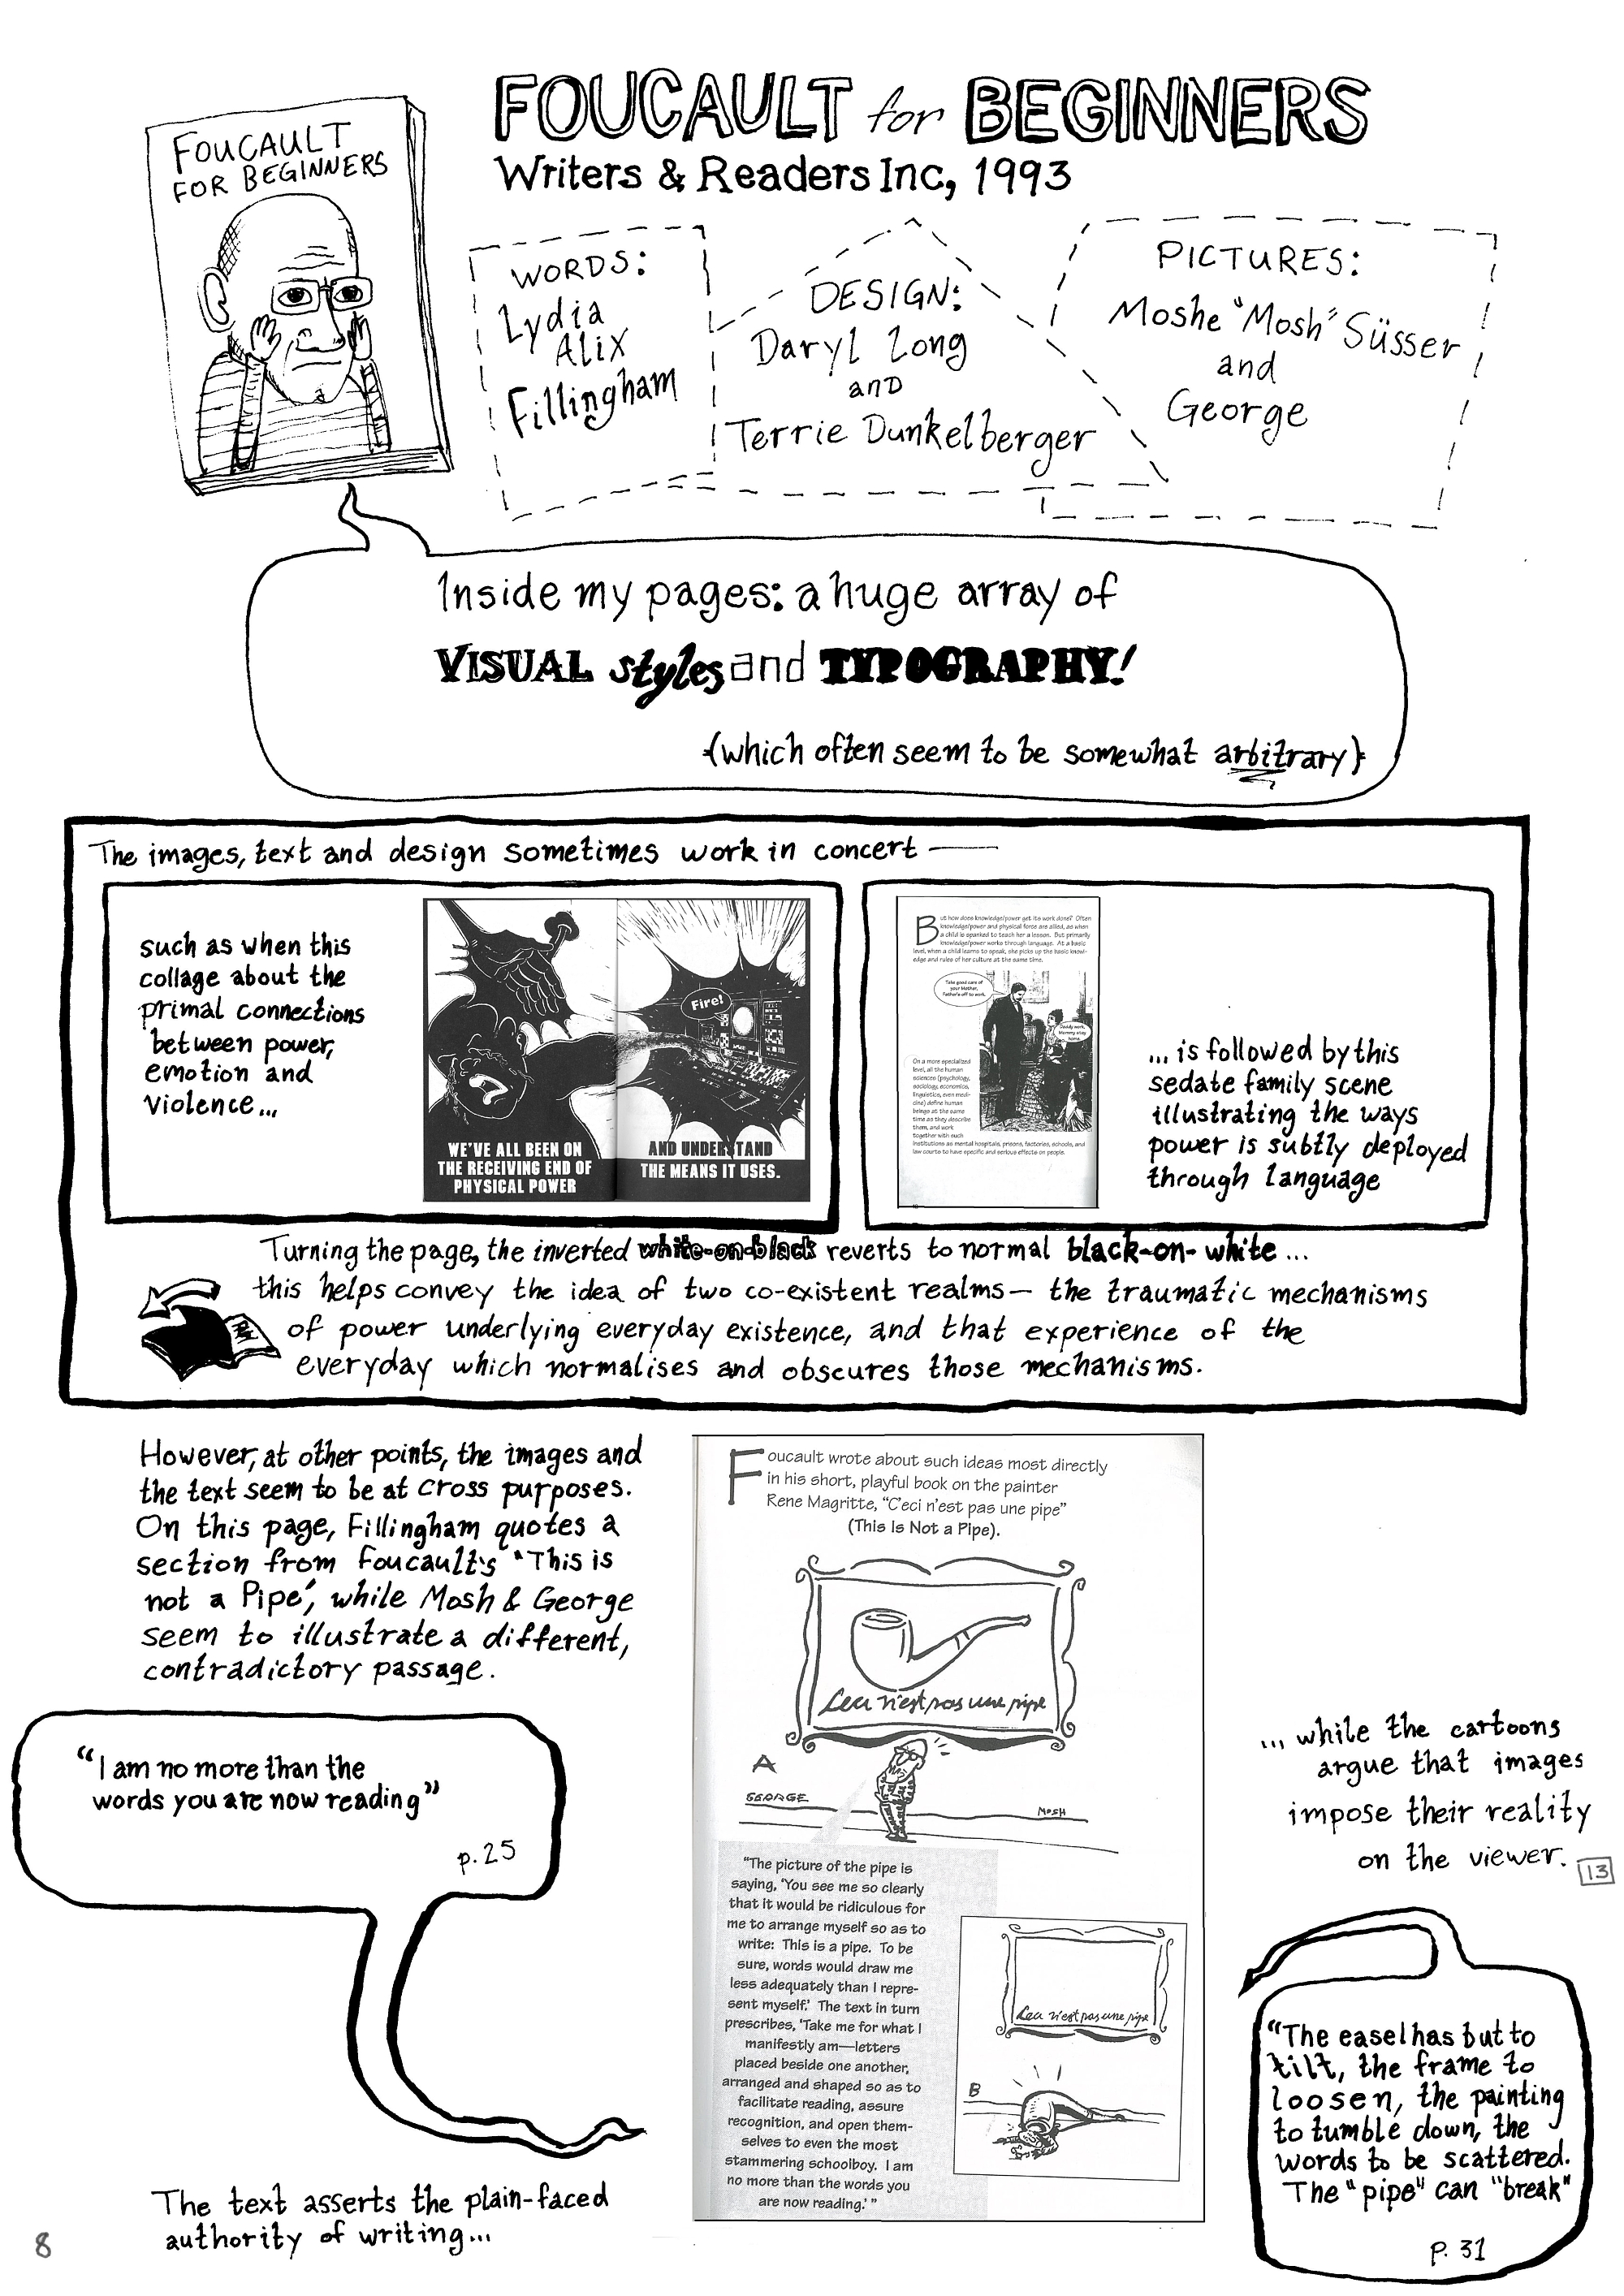 FOUCAULT
FOR BEGINNERS
FOUCAULT for BEGINNERS
Writers & Readers Inc, 1993
WORDS:
Lydia
Alix
Fillingham
DESIGN:
Daryl Long
and
Terrie Dunkelberger
PICTURES:
Moshe "Mosh" Süsser
and
George
Inside my pages: a huge array of
VISUAL styles and TYPOGRAPHY!
(which often seem to be somewhat arbitrary)
The images, text and design sometimes work in concert —
such as when this
collage about the
primal connections
between power,
emotion and
violence...
Fire!
WE'VE ALL BEEN ON
THE RECEIVING END OF
PHYSICAL POWER
AND UNDERSTAND
THE MEANS IT USES.
But how does knowledge/power get its work done? Often
knowledge/power and physical force are allied, as when
a child is spanked to teach her a lesson. But primarily
knowledge/power works through language. At a basic
level, when a child learns to speak, she picks up the basic knowl-
edge and rules of her culture at the same time.
Take good care of
your Mother,
Father's off to work.
Daddy work,
Mommy stay
home.
On a more specialized
level, all the human
sciences (psychology,
sociology, economics,
linguistics, even medi-
cine) define human
beings at the same
time as they describe
them, and work
together with such
institutions as mental hospitals, prisons, factories, schools, and
law courts to have specific and serious effects on people.
... is followed by this
sedate family scene
illustrating the ways
power is subtly deployed
through language
Turning the page, the inverted white-on-black reverts to normal black-on-white...
this helps convey the idea of two co-existent realms — the traumatic mechanisms
of power underlying everyday existence, and that experience of the
everyday which normalises and obscures those mechanisms.
However, at other points, the images and
the text seem to be at cross purposes.
On this page, Fillingham quotes a
section from Foucault's 'This is
not a Pipe', while Mosh & George
seem to illustrate a different,
contradictory passage.
"I am no more than the
words you are now reading"
p. 25
The text asserts the plain-faced
authority of writing...
Foucault wrote about such ideas most directly
in his short, playful book on the painter
Rene Magritte, "C'eci n'est pas une pipe"
(This Is Not a Pipe).
Ceci n'est pas une pipe
A
GEORGE
MOSH
"The picture of the pipe is
saying, 'You see me so clearly
that it would be ridiculous for
me to arrange myself so as to
write: This is a pipe. To be
sure, words would draw me
less adequately than I repre-
sent myself.' The text in turn
prescribes, 'Take me for what I
manifestly am—letters
placed beside one another,
arranged and shaped so as to
facilitate reading, assure
recognition, and open them-
selves to even the most
stammering schoolboy. I am
no more than the words you
are now reading.' "
Ceci n'est pas une pipe
B
... while the cartoons
argue that images
impose their reality
on the viewer.
13
"The easel has but to
tilt, the frame to
loosen, the painting
to tumble down, the
words to be scattered.
The "pipe" can "break"
p. 31
8